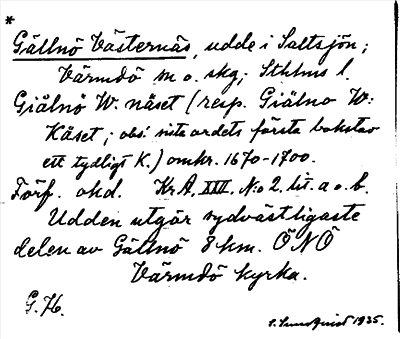 *
Gällnö Västernäs, udde i Saltsjön;
Värmdö sn o. skg; Sthlms l.
Giälnö W. näset (resp. Giälno W:
Käset; obs! sista ordets första bokstav
ett tydligt K.) omkr. 1670-1700.
Förf. okd. Kr.A. XXII. N:o 2 lit. a o. b.
Udden utgör sydvästligaste
delen av Gällnö 8 km. ÖNÖ
Värmdö kyrka.
G. H.
S. Sundqvist 1935.